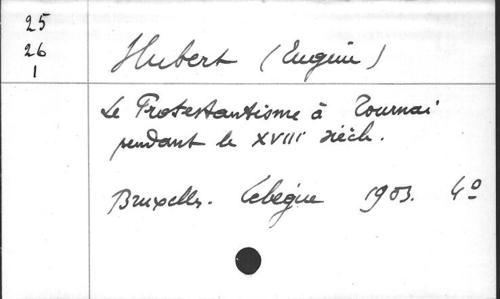 25
26
1
Hubert (Eugène)
Le Protestantisme à Tournai
pendant le XVIII siècle.
Bruxelles. Lebègue 1903. 4º